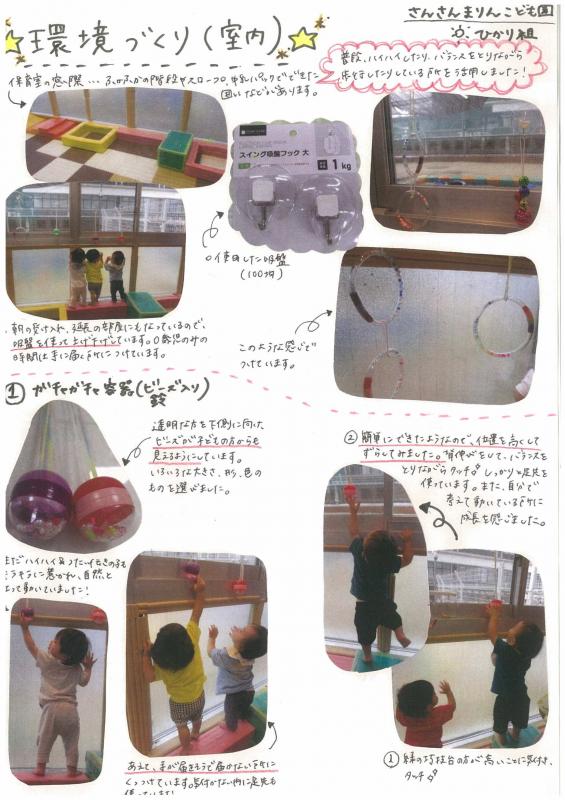 さんさんまりんこども園
ひかり組
環境づくり(室内)
保育室の窓際…ふかふかの階段やスロープ、牛乳パックでできた
囲いなどがあります。
普段、ハイハイしたり、バランスをとりながら
歩行したりしている所を活用しました!
スイング吸盤フック 大
1kg
使用した吸盤
(100均)
朝の受け入れ、延長の部屋にもなっているので、
吸盤を使って上げ下げしています。0歳児のみの
時間は手に届く所につけています。
このような感じで
つけています。
① ガチャガチャ容器(ビーズ入り)
鈴
透明な方を下側に向け
ビーズが子どもの方からも
見えるようにしています。
いろいろな大きさ、形、色の
ものを選びました。
② 簡単にできたようなので、位置を高くして
ずらしてみました。背伸びをして、バランスを
とりながらタッチ♪しっかりと足先を
使っています。また、自分で
考えて動いている所に
成長を感じました。
まだハイハイ
に惹かれ、自然と
って動いていました!
あえて、手が届きそうで届かない所に
くっつけています。気付かない内に足先も
使っています!
① 緑の巧技台の方が高いことに気付き、
タッチ♪